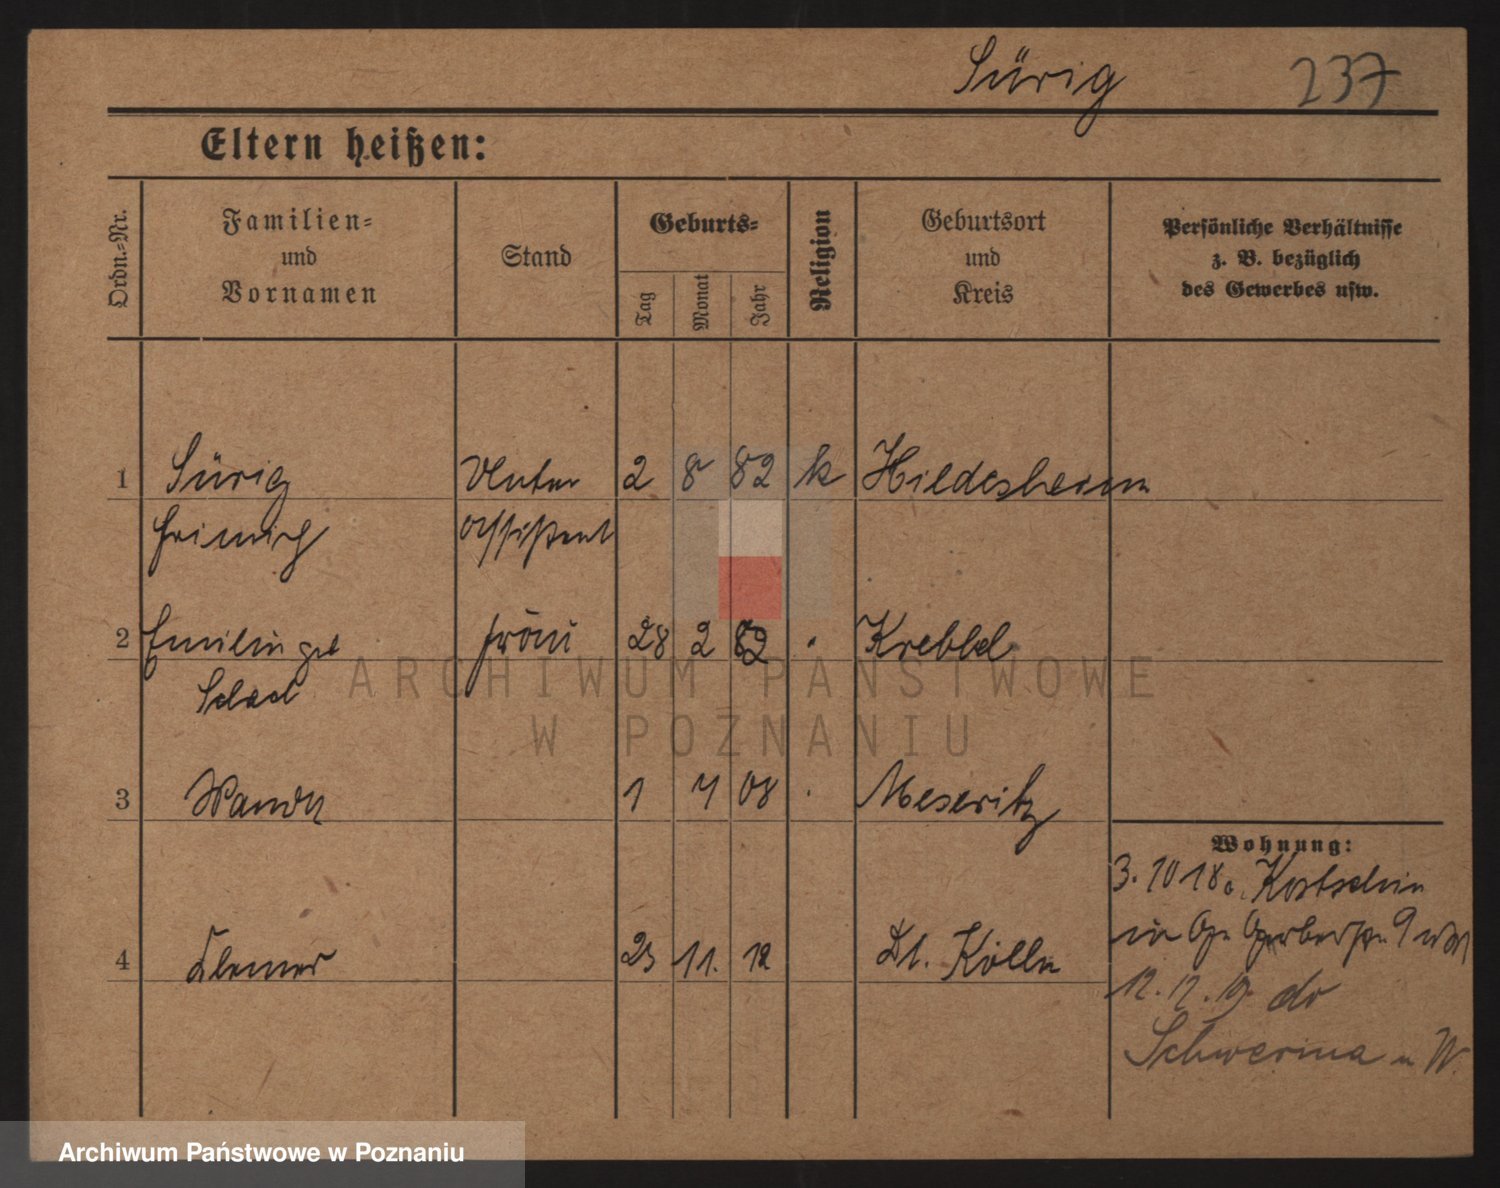 Sürig 237
Eltern heißen:
Ordn.=Nr.
Familien=
und
Vornamen
Stand
Geburts=
Tag
Monat
Jahr
Religion
Geburtsort
und
Kreis
Persönliche Verhältnisse
z. B. bezüglich
des Gewerbes usw.
1 Sürig 2 8 82 k Hildesheim
Heinrich Assistent
2 Emilie geb 28 2 82 Krebbel
3 Wanda 1 08 Meseritz
Wohnung:
3. 10 18
4 23 11. 12 Dt. Kölln
12. 12. 19. do
Schwerin a W.
ARCHIWUM PAŃSTWOWE
W POZNANIU
Archiwum Państwowe w Poznaniu